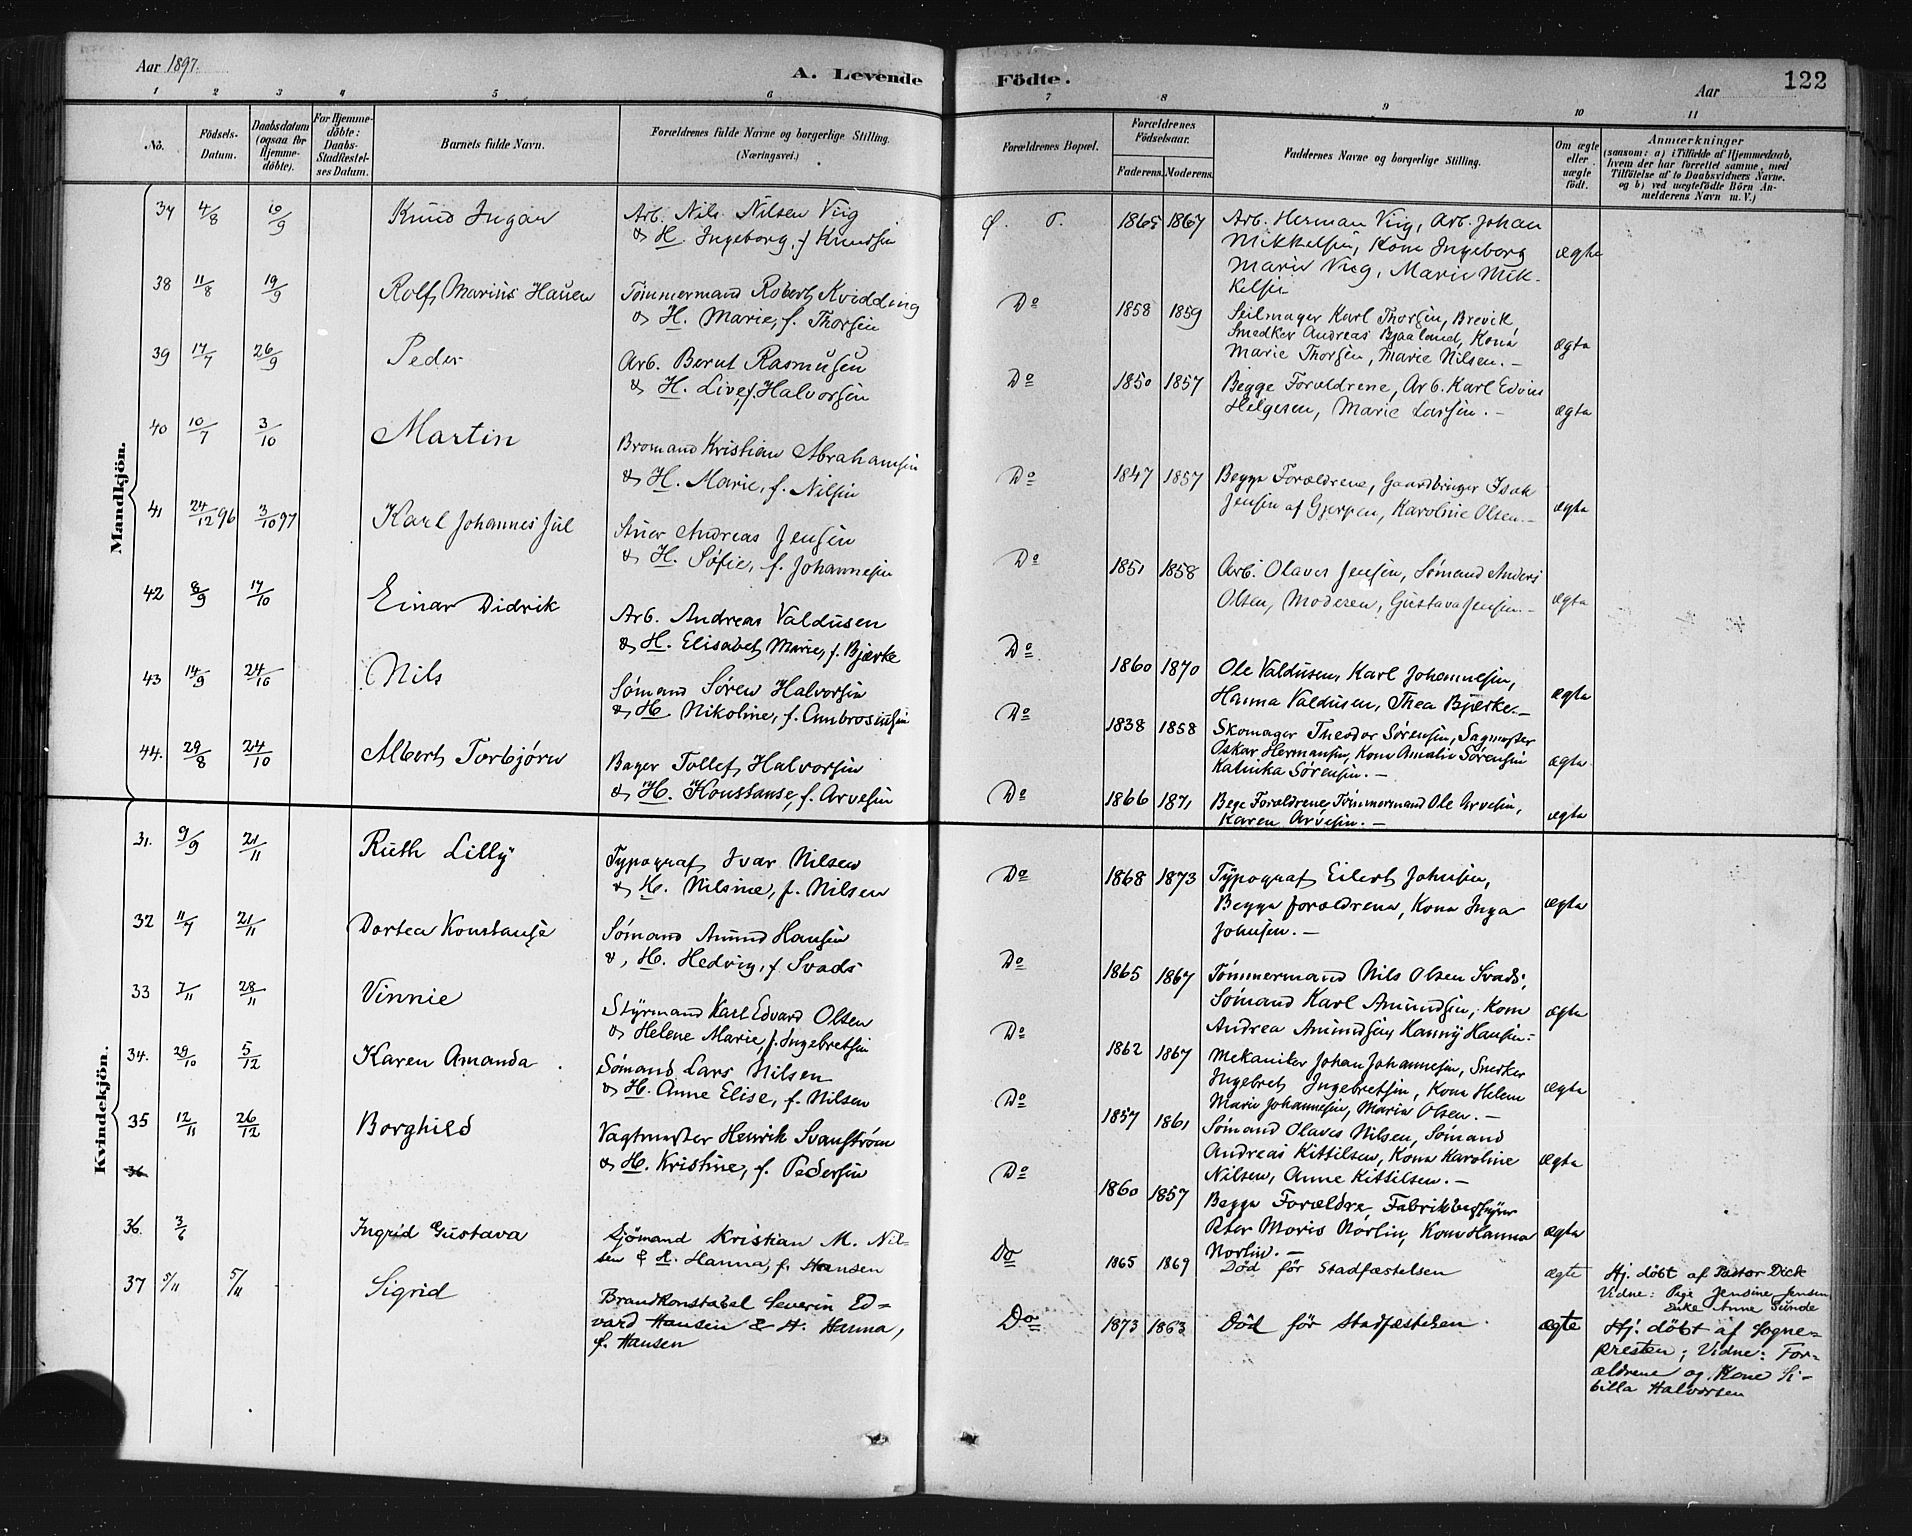 Aar 1897.
A. Levende Födte.
Aar
122
1 2 3 4 5 6 7 8 9 10 11
No.
Födsels-Datum.
Daabsdatum (ogsaa for Hjemme-döbte).
For Hjemme-döbte: Daabs-Stadfæstel-ses Datum.
Barnets fulde Navn.
Forældrenes fulde Navne og borgerlige Stilling. (Næringsvei.)
Forældrenes Bopæl.
Forældrenes Födselsaar.
Faderens. Moderens.
Faddernes Navne og borgerlige Stilling.
Om ægte eller uægte födt.
Anmærkninger
(saasom: a) i Tilfælde af Hjemmedaab, hvem der har forrettet samme, med Tilföielse af to Daabsvidners Navne, og b) ved uægtefödte Börn An-melderens Navn m. V.)
Mandkjön.
37 4/8 10/9 Knud Ingvar
Arb. Nils Nilsen Viig
& H. Ingeborg, f. Knudsen
Ø. T. 1865 1867
Arb. Herman Viig, Arb. Johan
Mikkelsen, Kone Ingeborg
Marie Viig, Marie Mik-
kelsen
ægte
38 11/8 19/9 Rolf Marius Hauen
Tømmermand Robert Kvidding
& H. Marie, f. Thorsen
Do 1858 1859
Seilmager Karl Thorsen, Brevik
Snedker Andreas Bjaaland, Kona
Marie Thorsen, Marie Nilsen. —
ægta
39 17/7 26/9 Peder
Arb. Bernt Rasmusen
& H. Live, f. Halvorsen
Do 1850 1857
Begge Forældrene, Arb. Karl Edvin
Helgesen, Marie Larsen. —
ægta
40 10/7 3/10 Martin
Bromand Kristian Abrahamsen
& H. Marie, f. Nilsen
Do 1847 1857
Begge Forældrene, Gaardbruger Isak
Jensen af Gjerpen, Karoline Olsen. —
ægta
41 24/12 96 3/10 97 Karl Johannes Jul
Stuer Andreas Jensen
& H. Sofie, f. Johannesen
Do 1851 1858
Arb. Olaves Jensen, Sømand Anders
Olsen, Moderen, Gustava Jensen. —
ægta
42 8/9 17/10 Einar Didrik
Arb. Andreas Valdusen
& H. Elisabet Marie, f. Bjærke
Do 1860 1870
Ole Valdusen, Karl Johannesen,
Hanna Valdusen, Thea Bjærke. —
ægta
43 14/9 24/10 Nils
Sømand Søren Halvorsen
& H. Nikoline, f. Ambrosiusen
Do 1838 1858
Skomager Theodor Sørensen, Sagmester
Oskar Hermansen, Kone Amalie Sørensen
Katinka Sørensen. —
ægta
44. 29/8 24/10 Albert Torbjørn
Bager Tollef Halvorsen
& H. Konstanse, f. Arvesen
Do 1866 1871
Bege Forældrene, Tømmermand Ole Arvesen,
Karen Arvesen. —
ægta
Kvindekjön.
31. 9/9 21/11 Ruth Lilly
Typograf Ivar Nilsen
& H. Nilsine, f. Nilsen
Do 1868 1873
Typograf Eilert Johnsen,
Begge forældrene, Kone Inga
Johnsen. —
ægta
32 11/7 21/11 Dortea Konstanse
Sømand Amund Hansen
&, H. Hedvig, f. Svads
Do 1865 1867
Tømmermand Nils Olsen Svads,
Sømand Karl Amundsen, Kone
Andrea Amundsen, Hanny Hansen. —
ægta
33 7/11 28/11 Vinnie
Styrmand Karl Edvard Olsen
& Helene Marie, f. Ingebretsen
Do 1862 1867
Mekaniker Johan Johannesen, Snedker
Ingebret Ingebretsen, Kone Helene
Marie Johannesen, Maria Olsen. —
ægta
34. 29/10 5/12 Karen Amanda
Sømand Lars Nilsen
& H. Anne Elise, f. Nilsen
Do 1857 1861
Sømand Olaves Nilsen, Sømand
Andreas Kittilsen, Kone Karoline
Nilsen, Anne Kittilsen. —
ægta
35 12/11 26/12 Borghild
Vagtmester Henrik Svanstrøm
& H. Kristine, f. Pedersen
Do 1860 1857
Begge Forældre, Fabrikbestyrer
Peter Moris Norlin, Kone Hanna
Norlin. —
ægta
36
36. 3/6 Ingrid Gustava
Sjömand Kristian M. Nil-
sen & H. Hanna, f. Hansen
Do 1865 1869
Död för Stadfæstelsen
ægte
Hj. döbt af Pastor Dick
Vidne: Pige Jensine Jensen
Enke Anne Sunde
37 5/11 5/11 Sigrid
Brandkonstabel Severin Ed-
vard Hansen & H. Hanna,
f. Hansen
Do 1873 1863
Död för Stadfæstelsen.
ægte
Hj. döbt af Sogne-
presten; Vidne: For-
ældrene og Kone Si-
billa Halvorsen